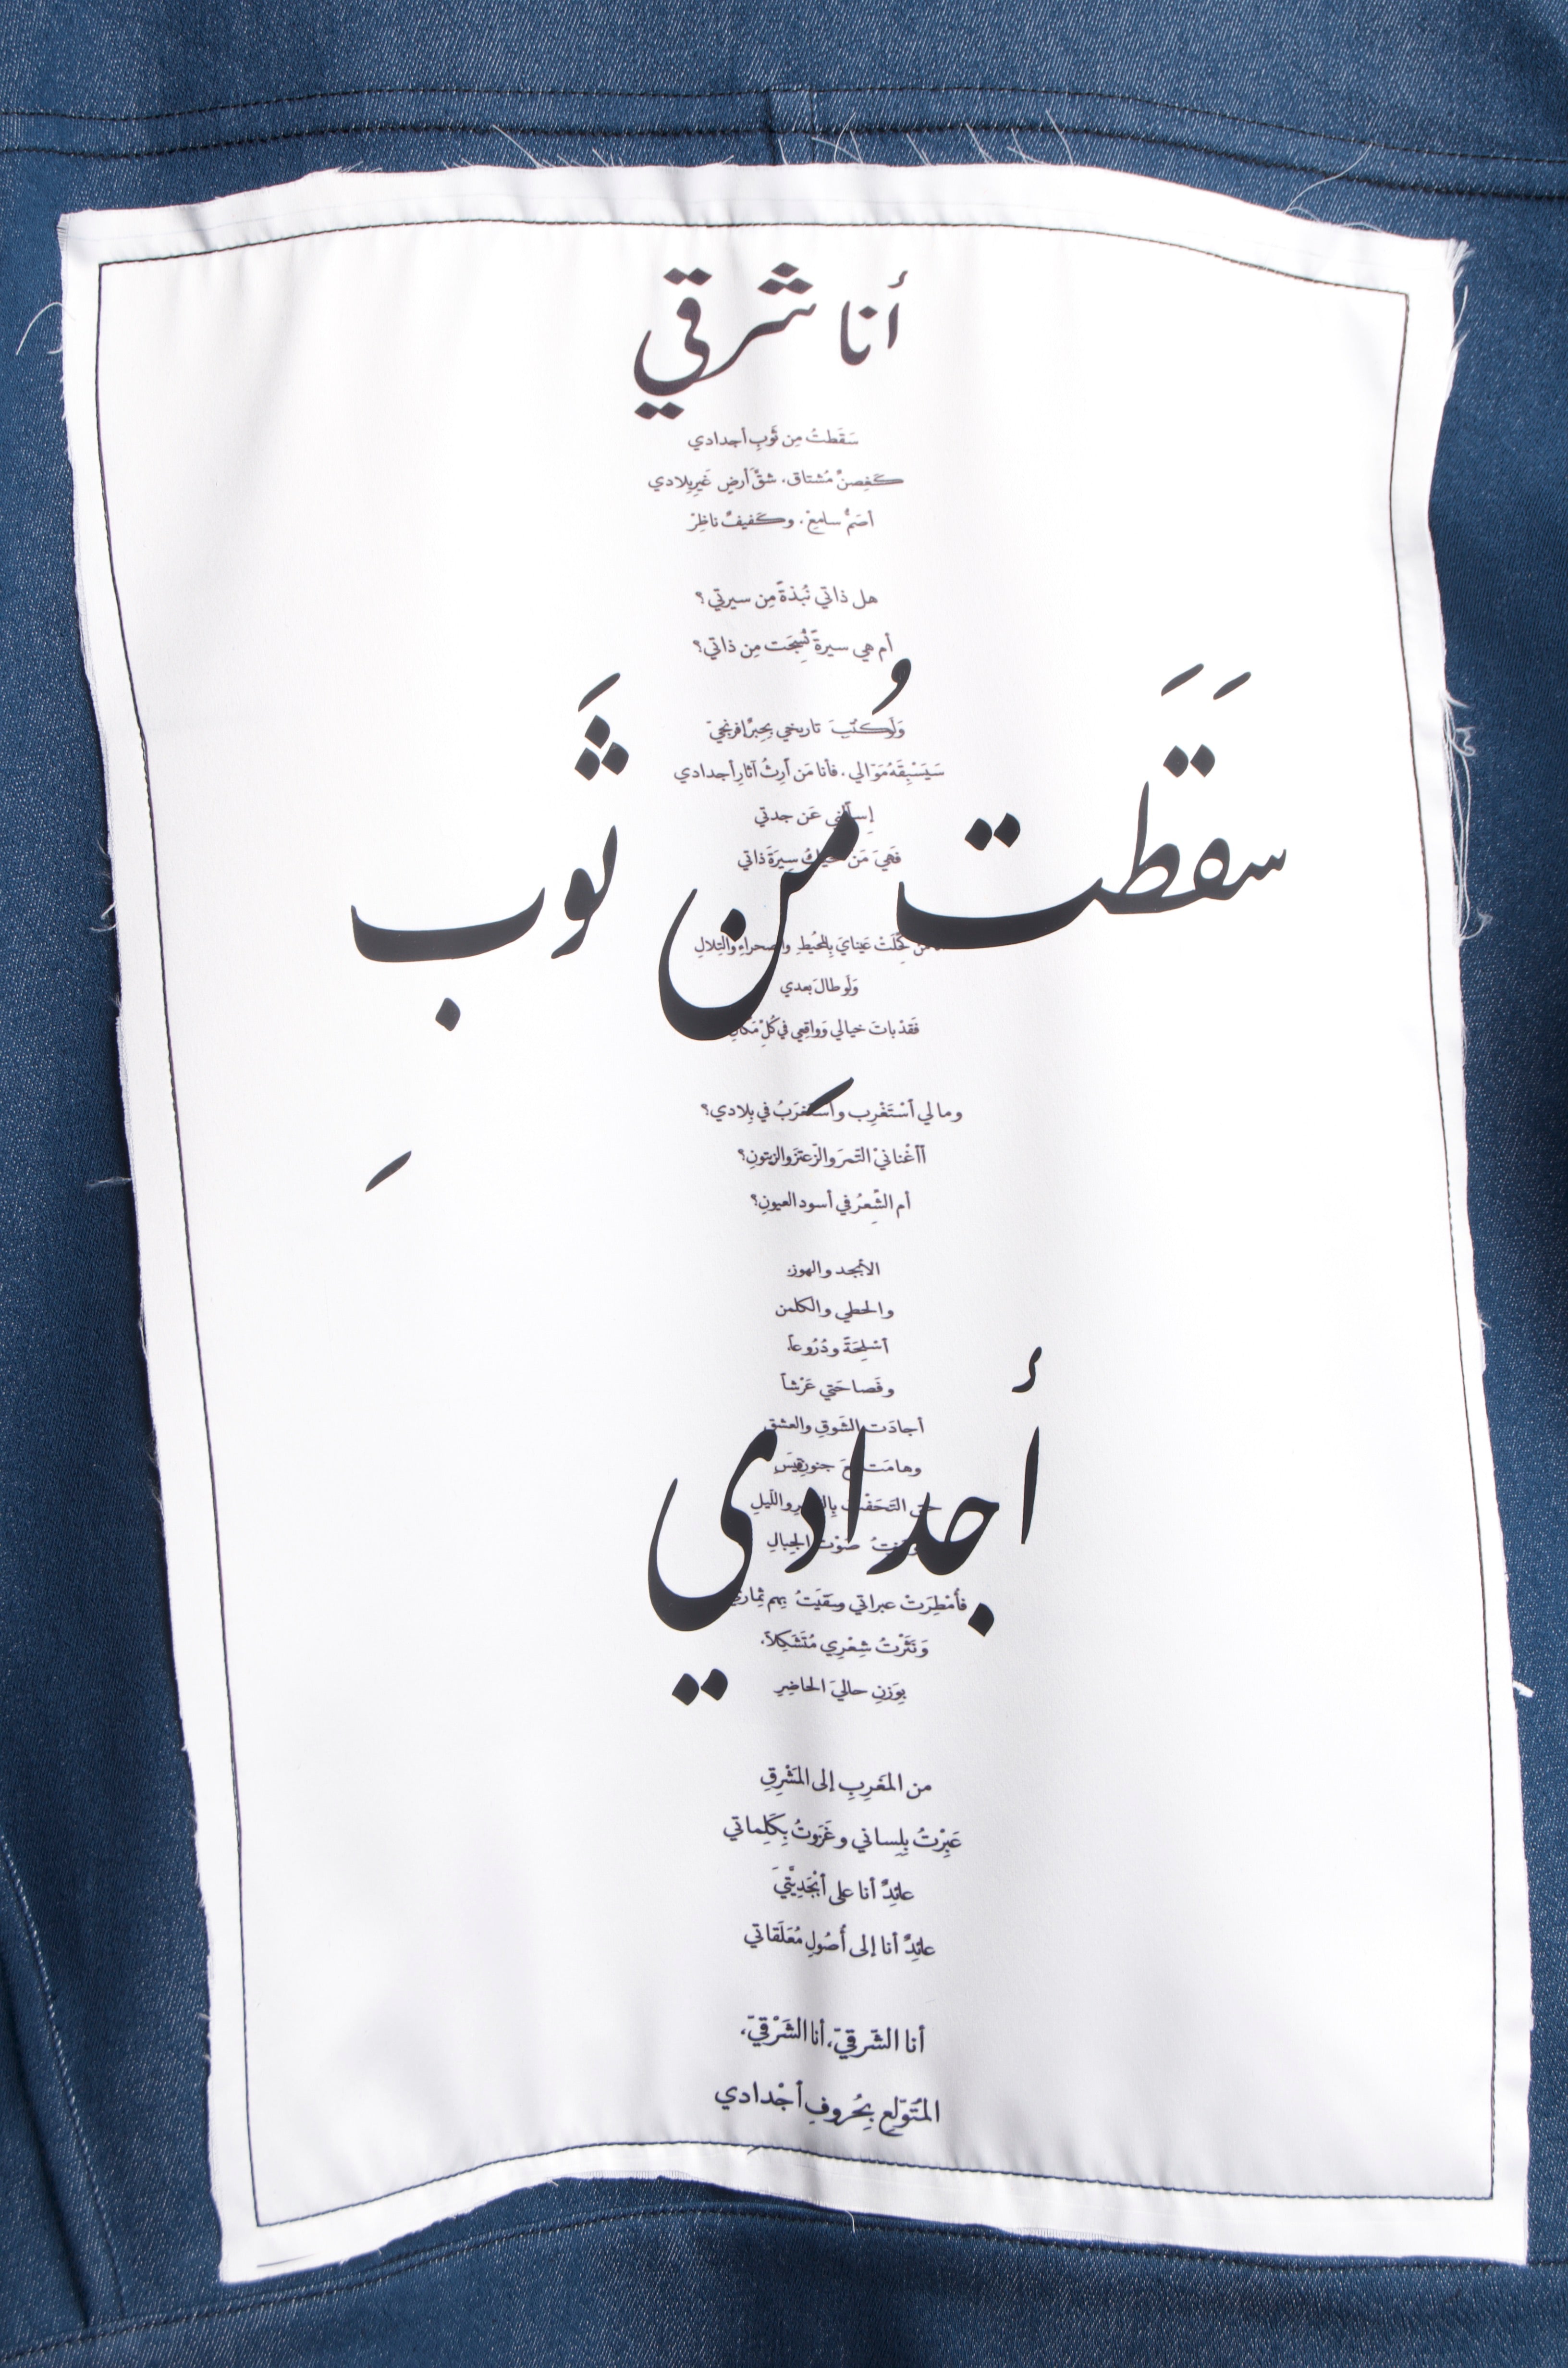 أنا شرقي
سَقَطتُ مِن ثَوبِ أجدادي
كَغِصنٌ مُشتاق، شقَّ أرضٍ غَيرِ بِلادي
أصَمٌّ سامِعْ، وكَفيفٌ ناظِرْ
هل ذاتي نُبذةً مِن سيرتي؟
أم هي سيرةً نُسِجَت مِن ذاتي؟
وَلَو كُتِبَ تاريخي بِحِبرٌ إفرنجيّ
سَيَسْبِقَهُ مَوّالي، فأنا مَن أرِثُ آثارِ أجدادي
إسألني عَن جدتي
فَهيَ مَن تَحيكُ سِيرَةَ ذاتي
سَقَطَتُ مِن ثَوبِ
مَن كُحِّلَتْ عَينايَ بِالمُحيطِ والصحراءِ والتِلالِ
وَلَو طالَ بعدي
فَقَدْ باتَ خيالي وَواقِعي في كُلِّ مَكانٍ
وما لي أسْتَغْرِب وأُستَغرَبُ في بِلادي؟
أأغْنانيْ التَمرَ والزَعتَرَ والزيتونِ؟
أم الشِّعرُ في أسود العيونِ؟
الأبجد والهوز،
والحطي والكلمن
أسْلِحَةً ودُرُوعاً،
وفَصاحَتي عَرْشاً
أجادَت الشَوقِ والعشقِ
وهامَت مَعَ جنونِ قيسَ
حتى التَحَفْتُ بِال واللَيلِ
صَوْتَ الجِبالِ
أجدادي
فأمْطِرَتْ عبراتي وسَقَيْتُ بِهم ثِماري
وَنَثَرْتُ شِعْرِي مُتَشَكِلاً،
بِوَزنِ حاليَ الحاضِرِ
من المَغرِبِ إلى المَشْرِقِ
عَبِرْتُ بِلِساني وغَزَوتُ بِكَلِماتي
عائِدٌ أنا على أبْجَدِيَّتيَ
عائِدٌ أنا إلى أُصُولِ مُعَلَقاتي
أنا الشَرقيّ، أنا الشَرْقيّ،
المُتَوَلِّع بِحُروفِ أجْدادي